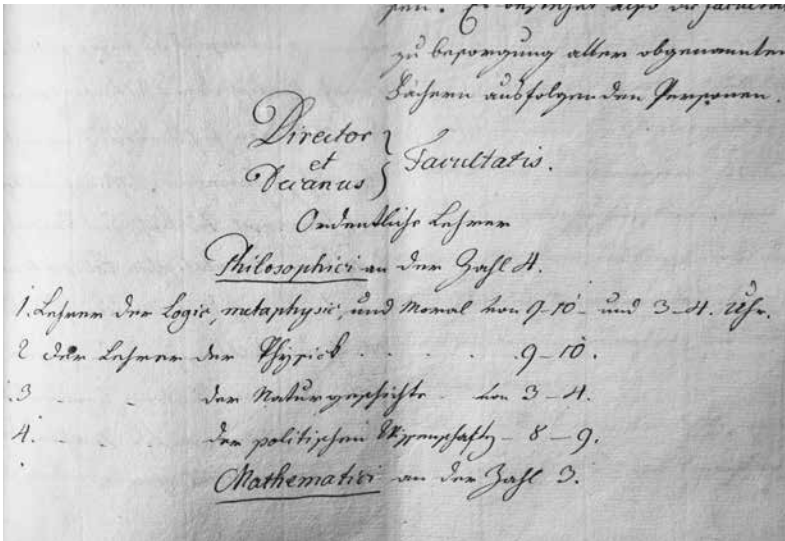 sen. Es bestehet also die facultas
zu besorgung aller obgenannten
Fächern aus folgenden Personen.
Director
et
Decanus } Facultatis.
Ordentliche Lehrer
Philosophici an der Zahl 4.
1. Lehrer der Logic, metaphysic, und Moral von 9-10- und 3-4. Uhr.
2 der Lehrer der Physick . . . . . 9-10.
3 - - der Naturgeschichte - von 3-4.
4. - - der politischen Wissenschaft - 8-9.
Mathematici an der Zahl 3.